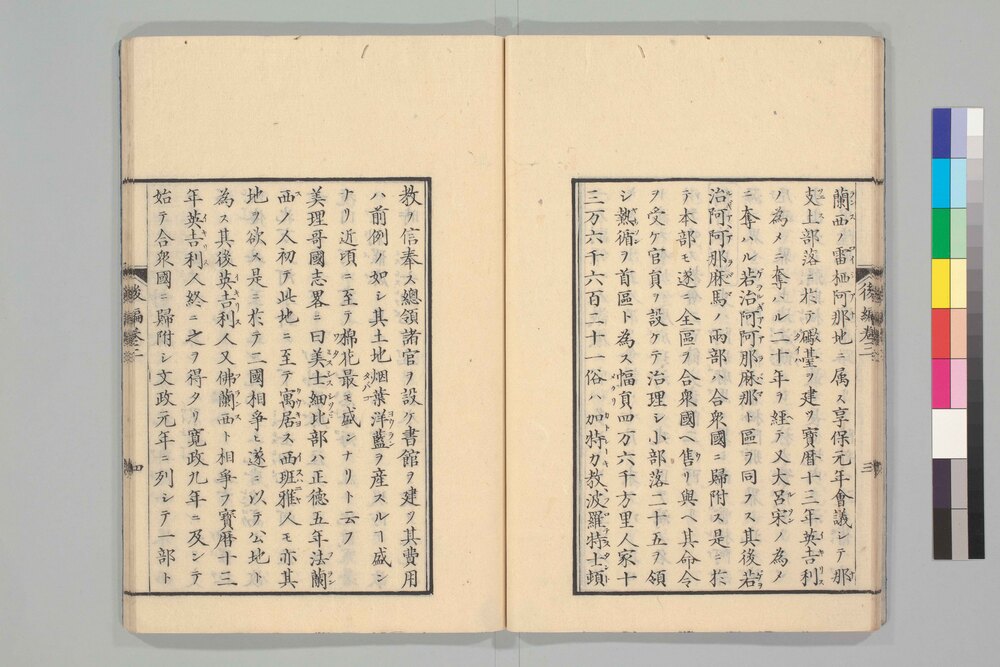 蘭西ノ雷栖阿那地ニ属ス享保元年會議シテ那
支土部落ニ於テ礟基ヲ建ツ寶曆十三年英吉利
ノ為メニ奪ハル二十年ヲ經テ又大呂宋ノ為メ
ニ奪ハル若治阿阿那麻那ト區ヲ同フス其後若
治阿阿那麻馬ノ兩部ハ合衆國ニ歸附ス是ニ於
テ本部モ遂ニ全區ヲ合衆國ヘ售リ與ヘ其命令
ヲ受ケ官員ヲ設ケテ治理シ小部落二十五ヲ領
シ熱循ヲ首區ト為ス幅員四万六千方里人家十
三万六千六百二十一俗ハ加特力教波羅特士頓
後編卷二
三
教ヲ信奉ス總領諸官ヲ設ケ書館ヲ建ツ其費用
ハ前例ノ如シ其土地烟葉洋藍ヲ産スルヿ盛ン
ナリ近頃ニ至テ棉花最モ盛ンナリト云フ
美理哥國志畧ニ曰美士細比部ハ正德五年法蘭
西ノ人初テ此地ニ至テ寓居ス西班雅人モ亦其
地ヲ欲ス是ニ於テ二國相爭ヒ遂ニ以テ公地ト
為ス其後英吉利人又佛蘭西ト相爭フ寶曆十三
年英吉利人終ニ之ヲ得タリ寬政九年ニ及ンテ
始テ合衆國ニ歸附シ文政元年ニ列シテ一部ト
後編卷二
四